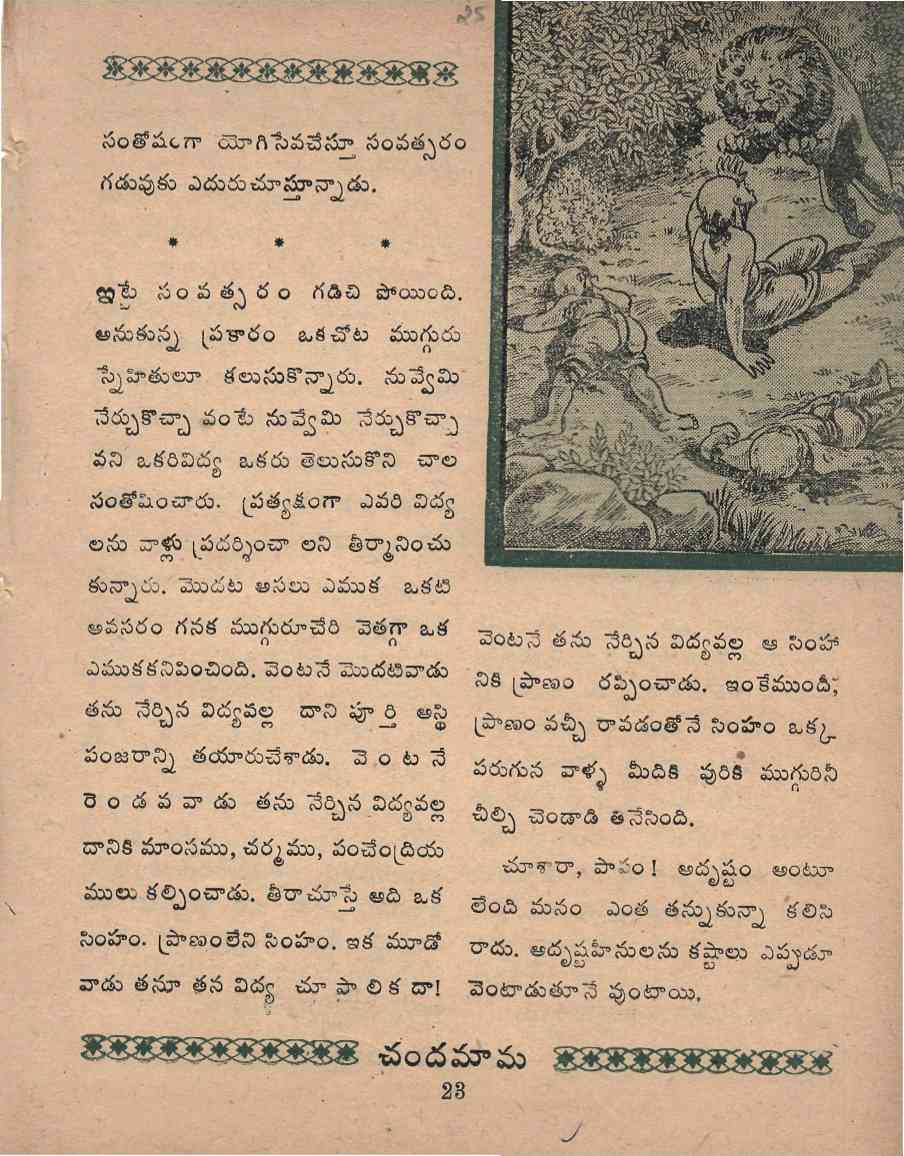 25
సంతోషంగా యోగిసేవచేస్తూ సంవత్సరం
గడువుకు ఎదురుచూస్తూన్నాడు.
* * *
ఇట్టే సంవత్సరం గడిచి పోయింది.
అనుకున్న ప్రకారం ఒకచోట ముగ్గురు
స్నేహితులూ కలుసుకొన్నారు. నువ్వేమి
నేర్చుకొచ్చా వంటే నువ్వేమి నేర్చుకొచ్చా
వని ఒకరివిద్య ఒకరు తెలుసుకొని చాల
సంతోషించారు. ప్రత్యక్షంగా ఎవరి విద్య
లను వాళ్లు ప్రదర్శించా లని తీర్మానించు
కున్నారు. మొదట అసలు ఎముక ఒకటి
అవసరం గనక ముగ్గురూచేరి వెతగ్గా ఒక
ఎముకకనిపించింది. వెంటనే మొదటివాడు
తను నేర్చిన విద్యవల్ల దాని పూర్తి అస్థి
పంజరాన్ని తయారుచేశాడు. వెంటనే
రెండవవాడు తను నేర్చిన విద్యవల్ల
దానికి మాంసము, చర్మము, పంచేంద్రియ
ములు కల్పించాడు. తీరాచూస్తే అది ఒక
సింహం. ప్రాణంలేని సింహం. ఇక మూడో
వాడు తనూ తన విద్య చూపాలికదా!
వెంటనే తను నేర్చిన విద్యవల్ల ఆ సింహా
నికి ప్రాణం రప్పించాడు. ఇంకేముందీ,
ప్రాణం వచ్చీ రావడంతోనే సింహం ఒక్క
పరుగున వాళ్ళ మీదికి వురికి ముగ్గురినీ
చీల్చి చెండాడి తినేసింది.
చూశారా, పాపం! అదృష్టం అంటూ
లేంది మనం ఎంత తన్నుకున్నా కలిసి
రాదు. అదృష్టహీనులను కష్టాలు ఎప్పుడూ
వెంటాడుతూనే వుంటాయి.
చందమామ
23